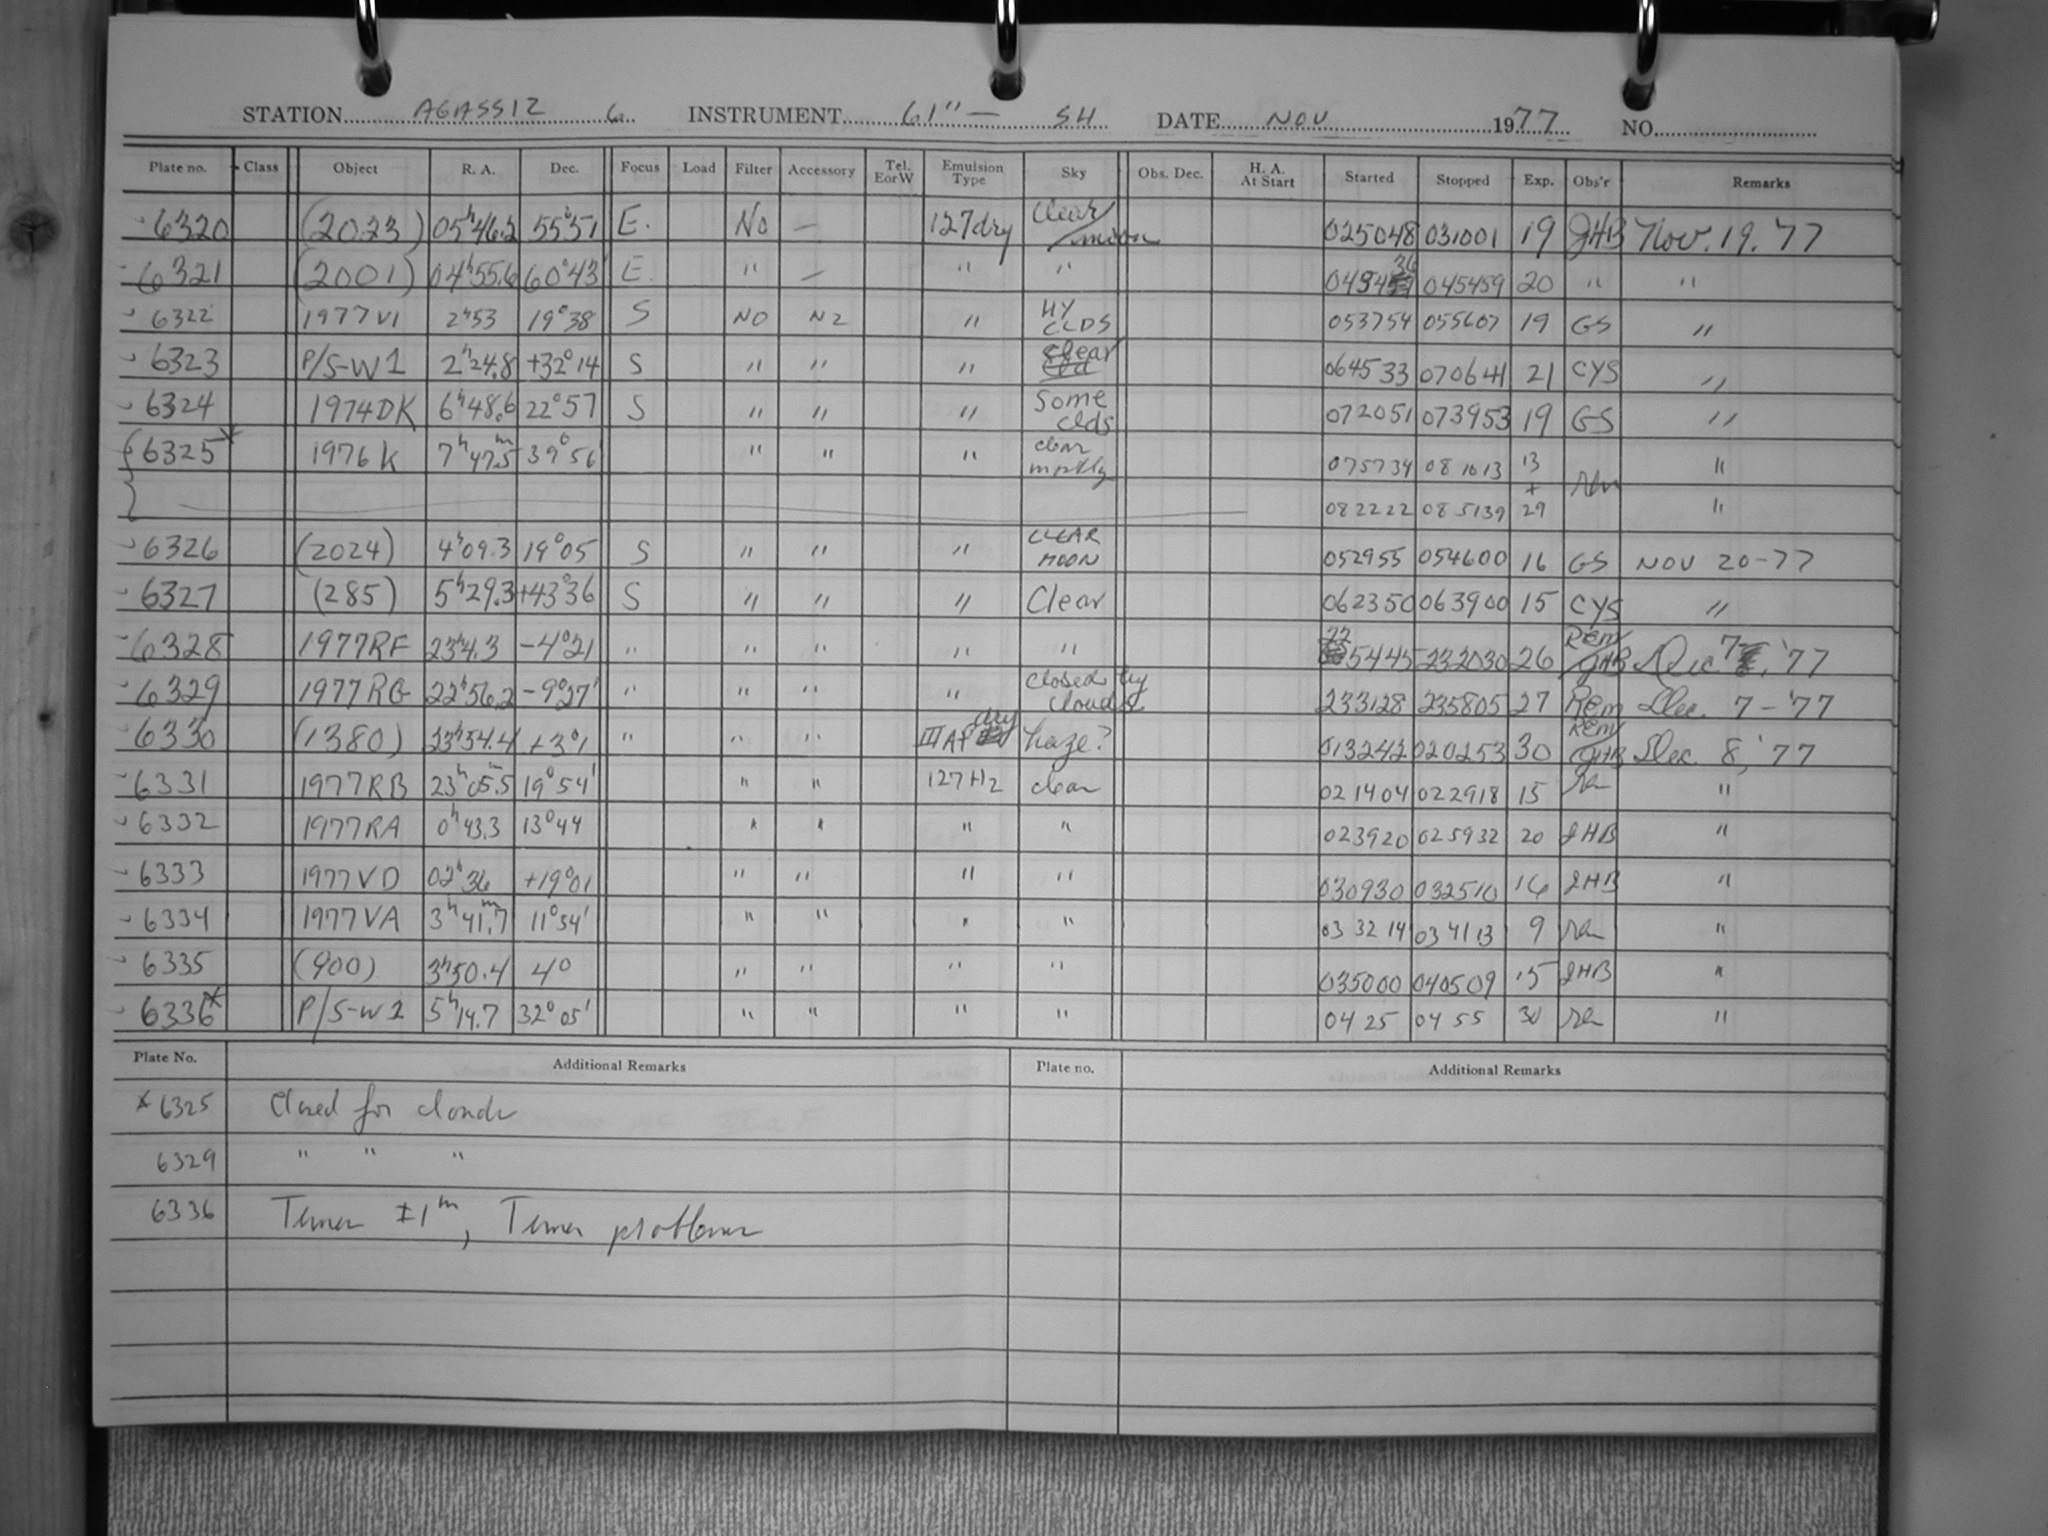 STATION AGASSIZ 6 INSTRUMENT 61" — SH DATE NOV 1977 NO.
Plate no. Class Object R. A. Dec. Focus Load Filter Accessory Tel. EorW Emulsion Type Sky Obs. Dec. H. A. At Start Started Stopped Exp. Obs'r Remarks
6320 (2023) 05h46.2 55°51 E. No — 127dry Clear/moon 025048 031001 19 JHB Nov. 19. '77
6321 (2001) 04h55.6 60°43' E. " — " " 0434 36 045459 20 " "
6322 1977VI 2h53 19°38 S NO N2 " HY CLDS 053754 055607 19 GS "
6323 P/S-W1 2h24.8 +32°14 S " " " Clear 064533 070641 21 CYS "
6324 1974DK 6h48.6 22°57 S " " " Some clds 072051 073953 19 GS "
6325* 1976K 7h47.5m 39°56' " " " clear mostly 075734 081013 13 rem "
+ 082222 085139 29 "
6326 (2024) 4h09.3 19°05 S " " " CLEAR MOON 052955 054600 16 GS NOV 20-77
6327 (285) 5h29.3 +43°36 S " " " Clear 062350 063900 15 CYS "
6328 1977RF 23h4.3 -4°21 " " " " " 225445 232030 26 Rem/JHB Dec 7, '77
6329 1977RG 22h56.2 -9°27' " " " " closed by clouds 233128 235805 27 Rem Dec. 7-'77
6330 (1380) 23h54.4 +3°1 " " " IIIAF dry haze? 013242 020253 30 Rem/JHB Dec. 8, '77
6331 1977RB 23h05.5 19°54' " " 127H2 clear 021404 022918 15 rem "
6332 1977RA 0h43.3 13°44 " " " " 023920 025932 20 JHB "
6333 1977VD 02h36 +19°01 " " " " 030930 032510 16 JHB "
6334 1977VA 3h41.7m 11°54' " " " " 033214 034113 9 rem "
6335 (900) 3h50.4 4° " " " " 035000 040509 15 JHB "
6336* P/S-W1 5h14.7 32°05' " " " " 0425 0455 30 rem "
Plate No. Additional Remarks Plate no. Additional Remarks
* 6325 Closed for clouds
6329 " " "
6336 Timer ±1m, Timer problems